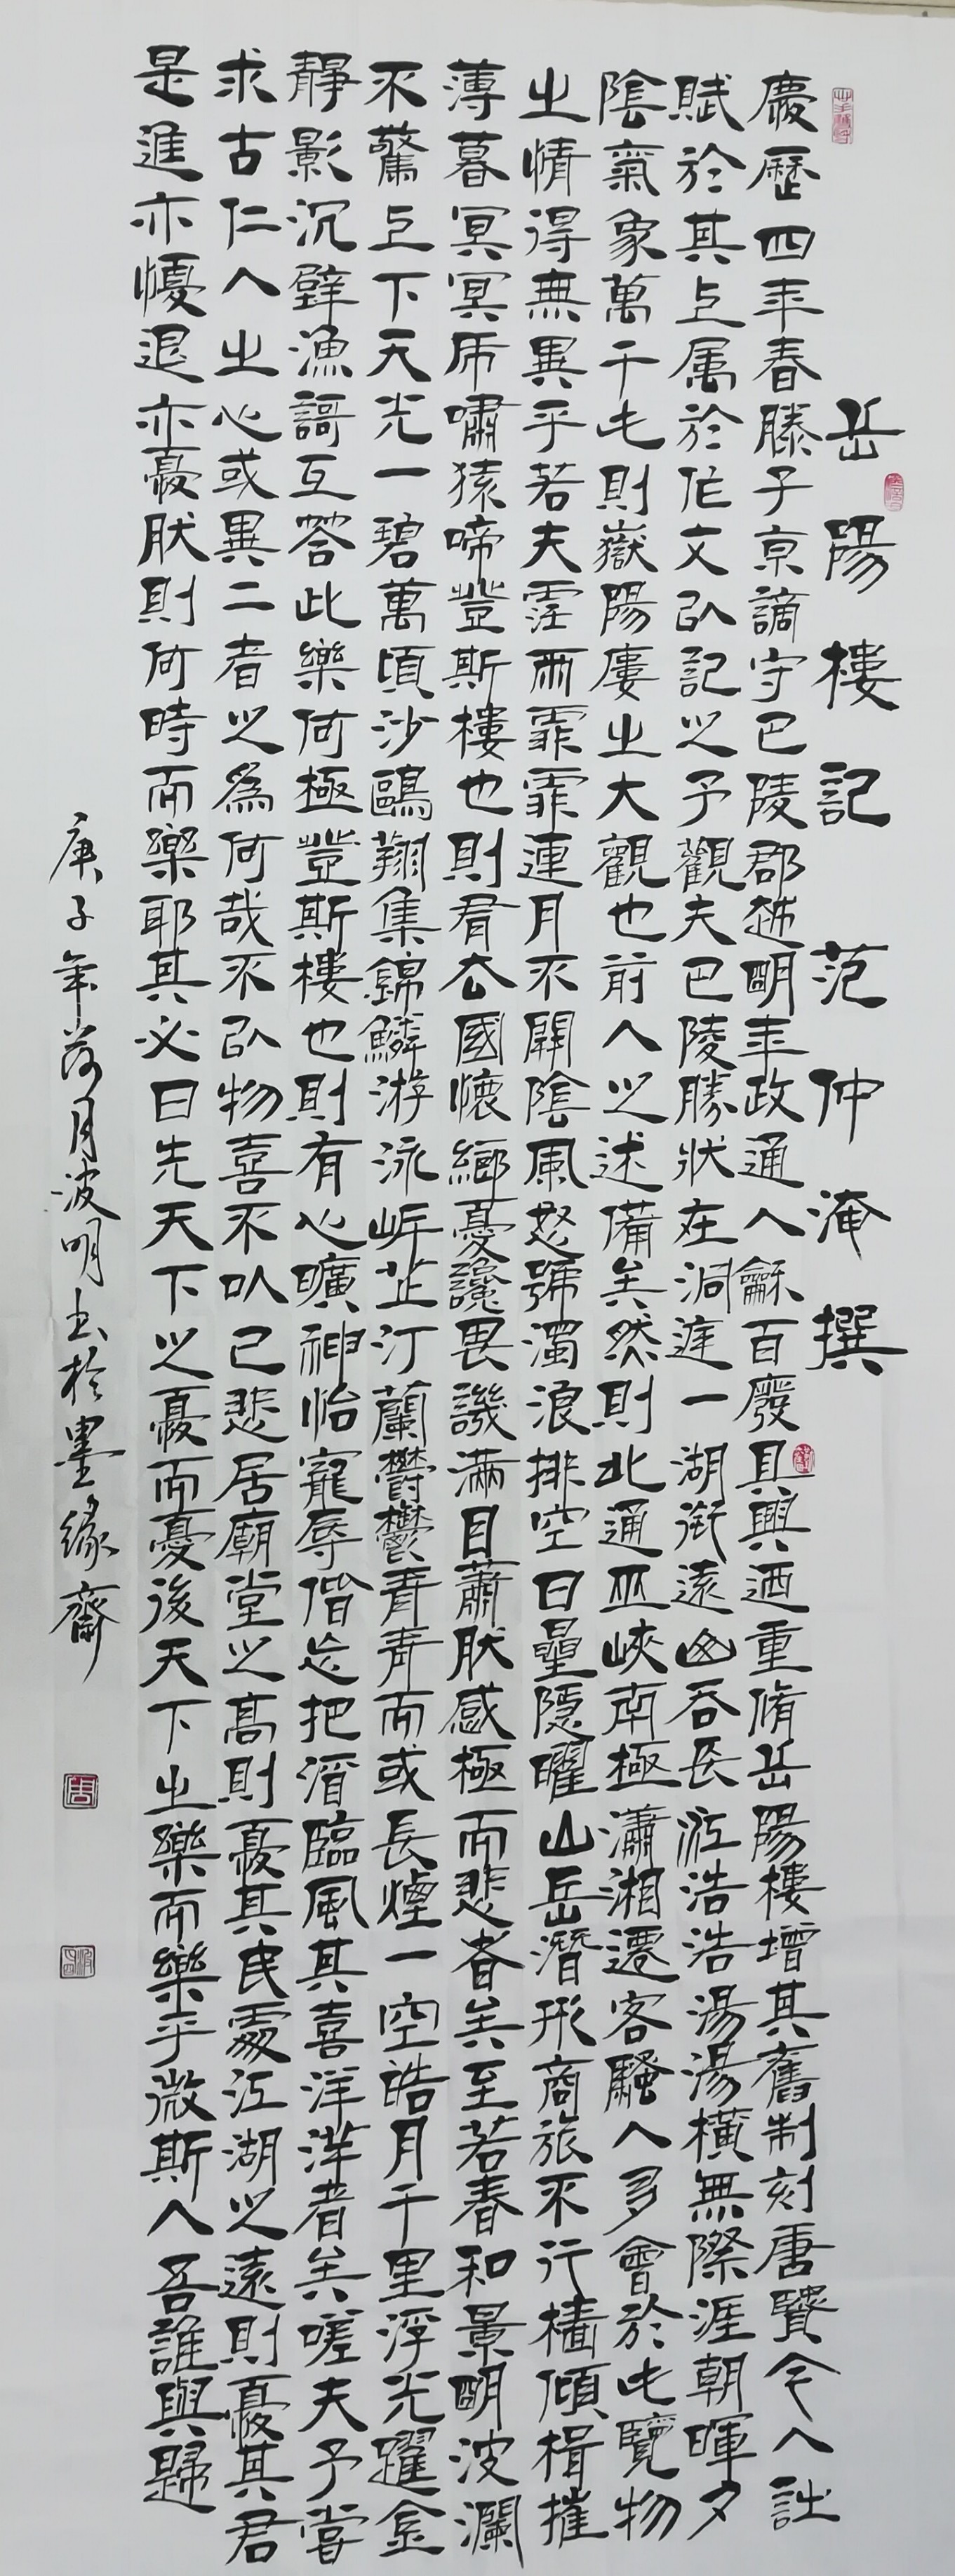 岳陽樓記 范仲淹撰
慶歷四年春滕子京謫守巴陵郡越明年政通人龢百廢具興迺重脩岳陽樓增其舊制刻唐賢今人詩
賦於其上属於作文以記之予觀夫巴陵勝狀在洞庭一湖銜遠山吞長江浩浩湯湯橫無際涯朝暉夕
陰氣象萬千此則嶽陽樓之大觀也前人之述備矣然則北通巫峽南極瀟湘遷客騷人多會於此覽物
之情得無異乎若夫霪雨霏霏連月不開陰風怒號濁浪排空日星隱曜山岳潛形商旅不行檣傾楫摧
薄暮冥冥虎嘯猿啼登斯樓也則有去國懷鄉憂讒畏譏滿目蕭然感極而悲者矣至若春和景明波瀾
不驚上下天光一碧萬頃沙鷗翔集錦鱗游泳岸芷汀蘭鬱鬱青青而或長煙一空皓月千里浮光躍金
靜影沉璧漁謌互荅此樂何極登斯樓也則有心曠神怡寵辱偕忘把酒臨風其喜洋洋者矣嗟夫予嘗
求古仁人之心或異二者之為何哉不以物喜不以己悲居廟堂之高則憂其民處江湖之遠則憂其君
是進亦憂退亦憂然則何時而樂耶其必曰先天下之憂而憂後天下之樂而樂乎微斯人吾誰與歸
庚子年荷月波明書於墨緣齋